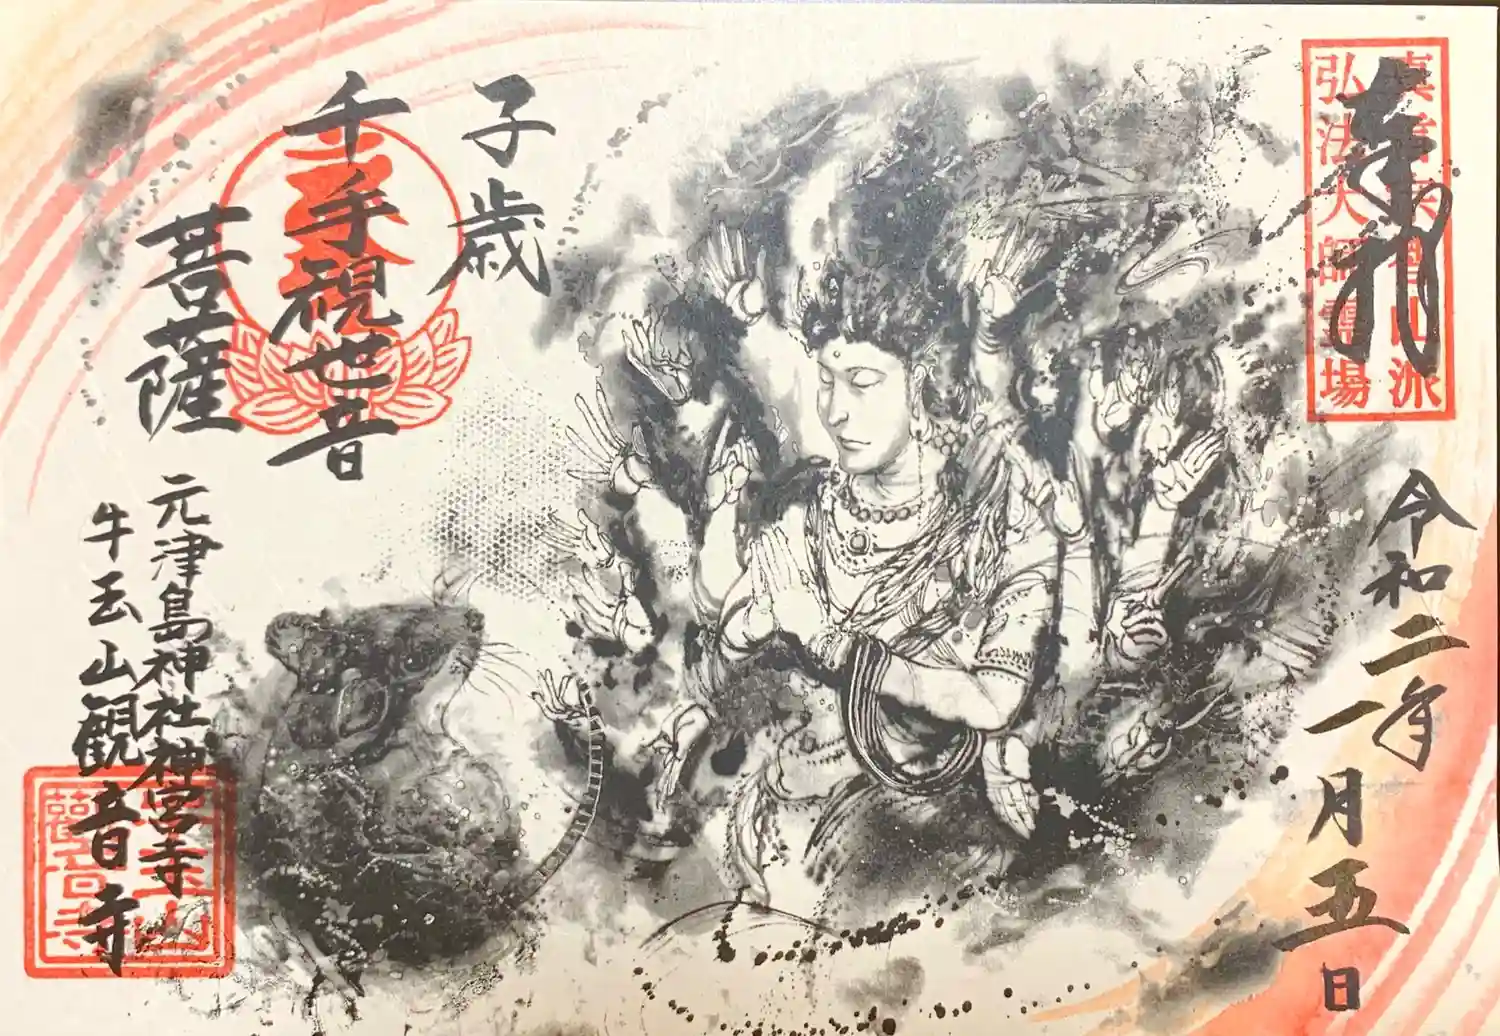 奉拝
真言宗智山派
弘法大師霊場
令和二年
一月五日
子歳
千手視世音
菩薩
元津島神社神宮寺
牛玉山観音寺
牛玉山
観音寺